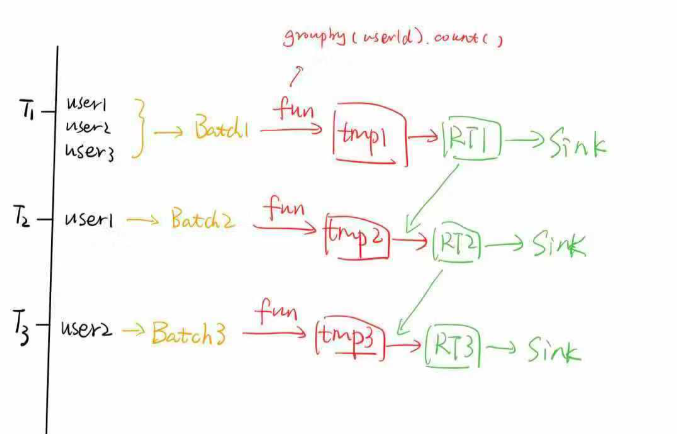 groupby(userId).count()
T1 user1 user2 user3 → Batch1 fun → tmp1 → RT1 → Sink
T2 user1 → Batch2 fun → tmp2 → RT2 → Sink
T3 user2 → Batch3 fun → tmp3 → RT3 → Sink